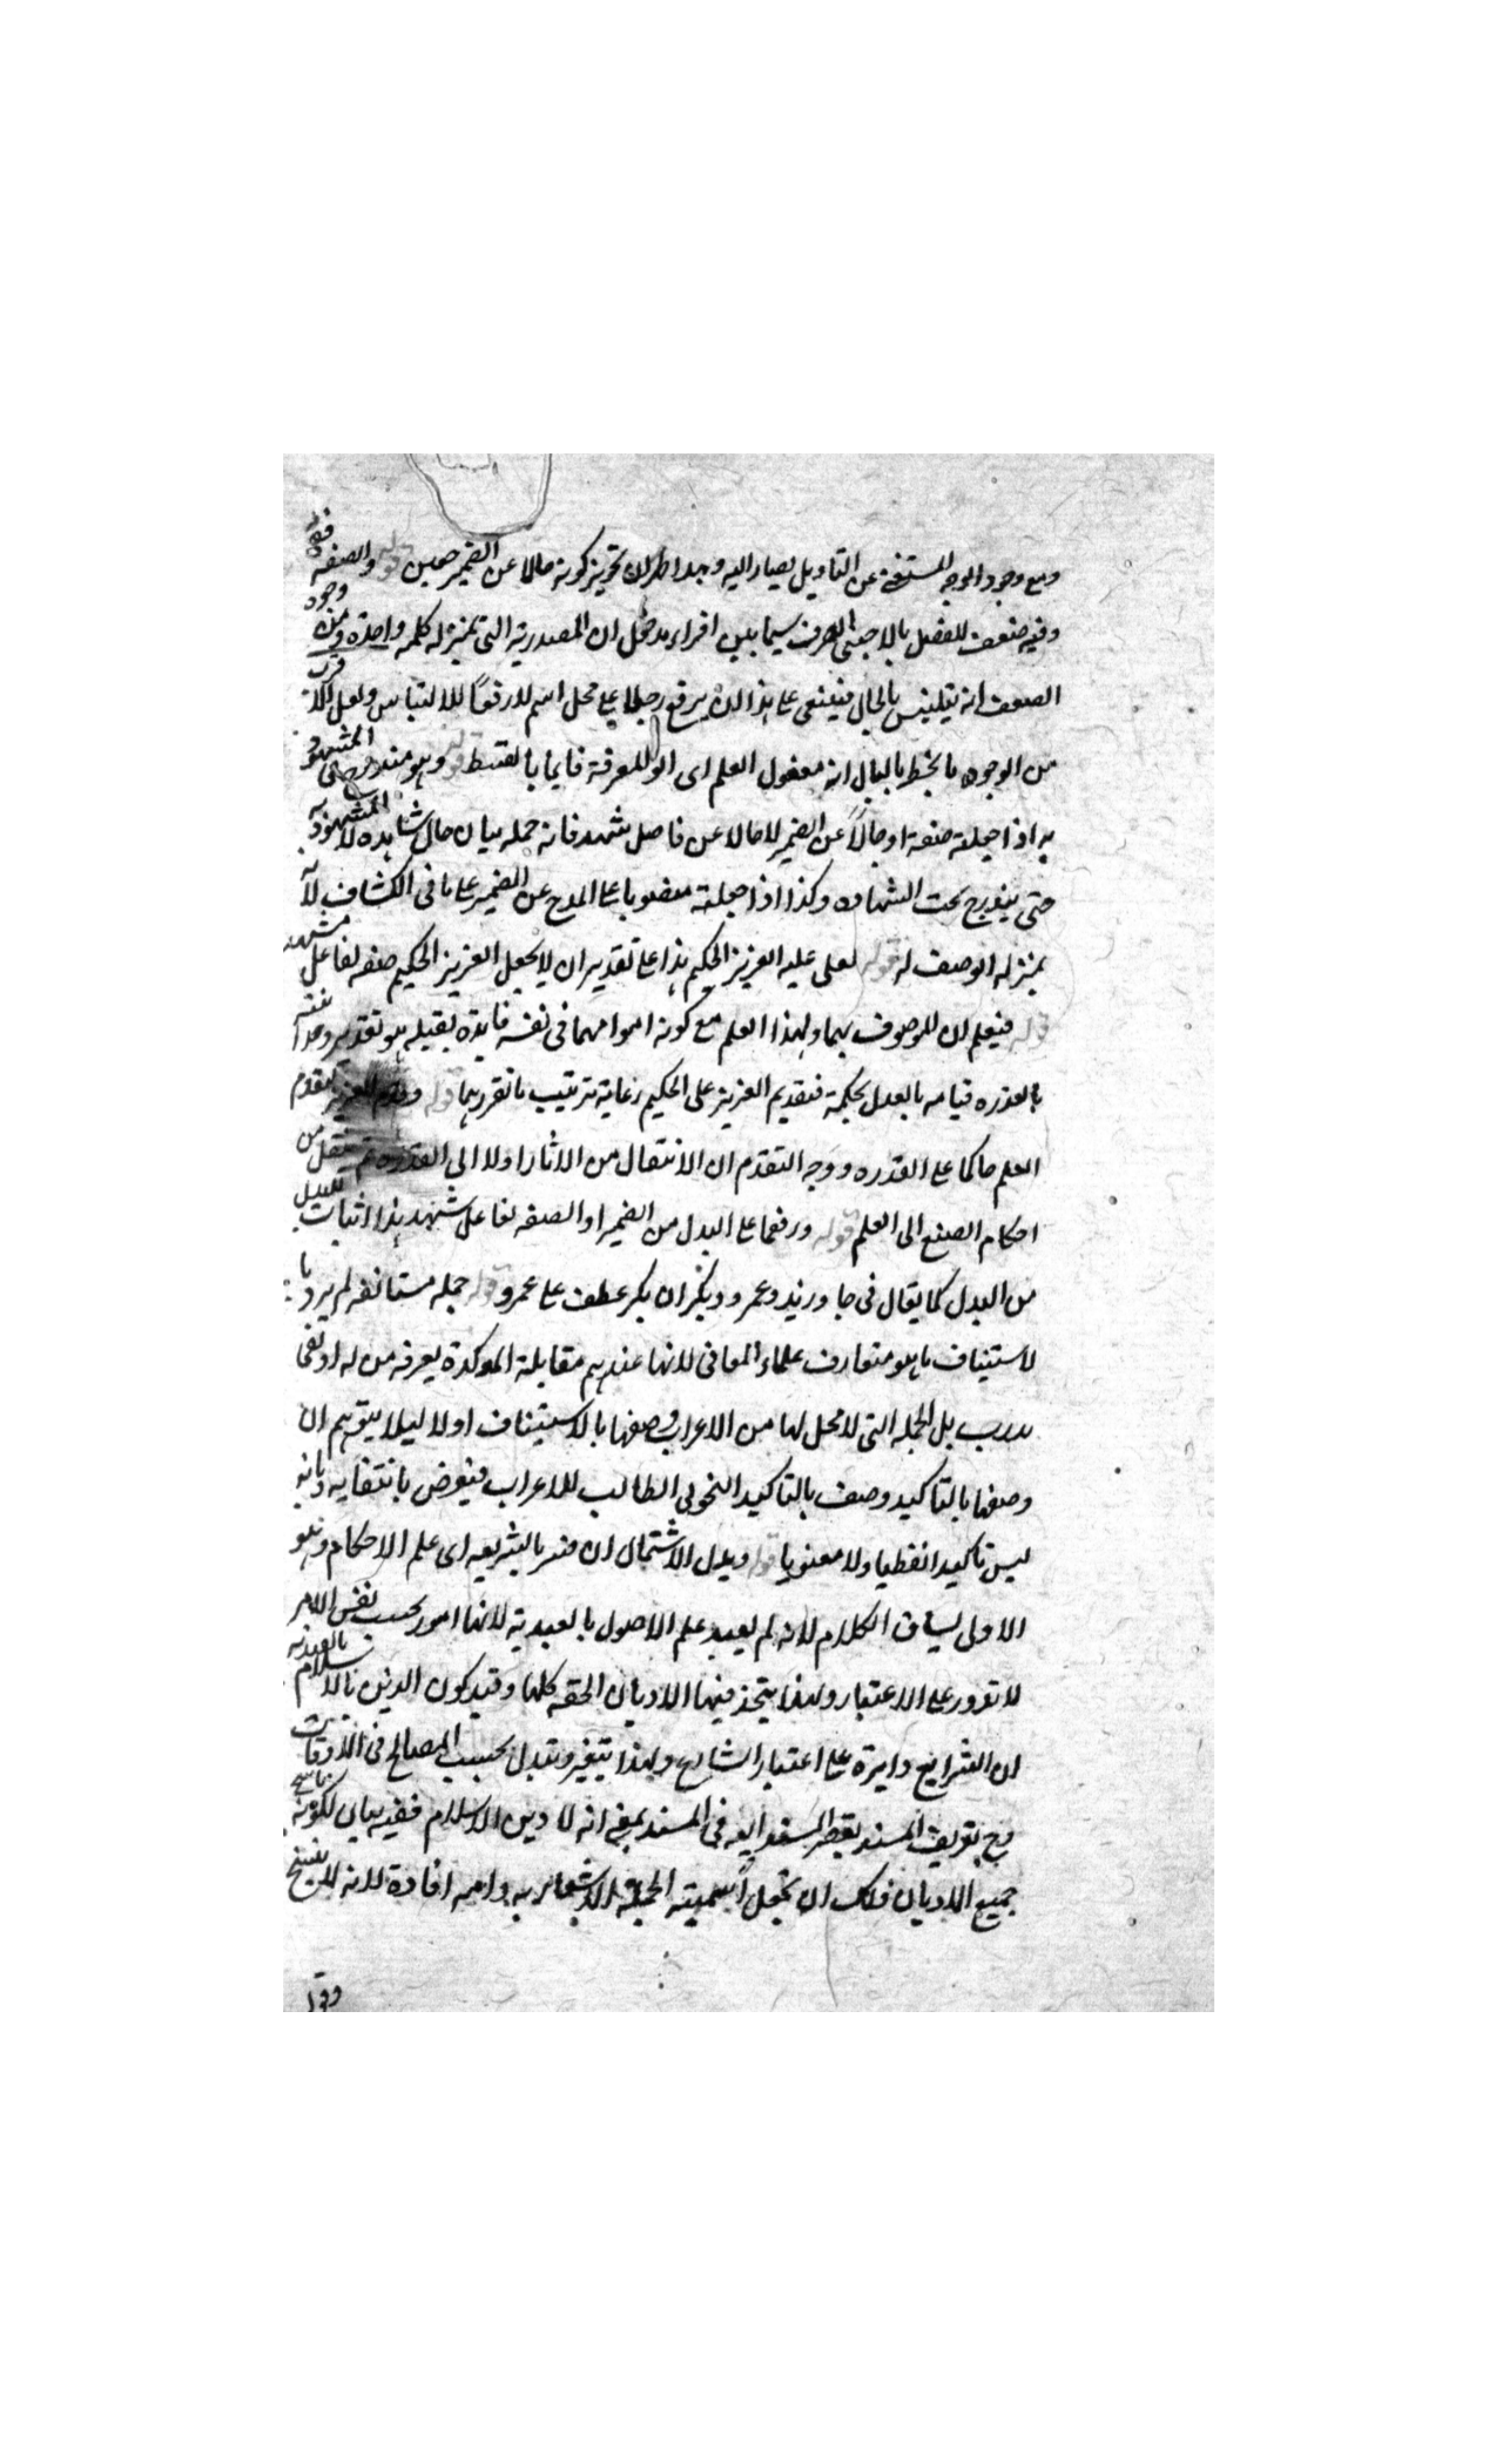 ومع وجود الوجه المستغنى عن التاويل يصار اليه وبهذا ظهر ان تجويز كونه حالا عن الضمير حين قوله والصفه
وفيه ضعف للفصل بالاجنبى الصرف سيما بين اجزاء مدخل ان المصدرية التى بمنزله كلمه واحدة ومن وجوه
الضعف انه يلتبس بالحال فينبغى على هذا ان يرفع على محل اسم لا رفعا للالتباس ولعل الاقرب
من الوجوه ما يخطر بالبال انه مفعول العلم اى اولوا المعرفة قايما بالقسط قوله وهو مندرج فى المشهود
به اذا جعلته صفة او حالا عن الضمير لا حالا عن فاعل شهد فانه ح بيان حال شاهده لا المشهود به
حتى يندرج تحت الشهاده وكذا اذا جعلته منصوبا على المدح عن الضمير على ما فى الكشاف لانه
بمنزله الوصف له قوله لعلى عليه العزيز الحكيم هذا على تقدير ان لا يجعل العزيز الحكيم صفه لفاعل شهد
قوله فيعلم ان الموصوف بهما ولهذا العلم مع كونه امرا مهما فى نفسه فايدة بقيله هو تقدير وحدا نيته
بالقدره قيامه بالعدل بحكمة فتقديم العزيز على الحكيم رعاية ترتيب ما تقرر بهما قوله وقدم العزيز لتقدم
العلم حاكما على القدره ووجه التقدم ان الانتقال من الاثار اولا الى القدرة ثم ينتقل من
احكام الصنع الى العلم قوله ورفعهما على البدل من الضمير او الصفه لفاعل شهد هذا اثبات للبدل
من البدل كما يقال فى جاء زيد وعمرو وبكر ان بكر عطف على عمرو قوله جمله مستانفه لم يرد با
لاستيناف ما هو متعارف علماء المعانى لانها عندهم مقابلة الموكدة يعرفه من له ادنى
درب بل الجمله التى لا محل لها من الاعراب وصفها بالاستيناف اولا ليلا يتوهم ان
وصفها بالتاكيد وصف بالتاكيد النحوى الطالب للاعراب فيعرض بانتفايه وبانه
ليس تاكيدا لفظيا ولا معنويا قوله وبدل الاشتمال ان فسر بالشريعه اى علم الاحكام وهو
الاولى لسياق الكلام لانه لم يعبد علم الاصول بالعبدية لانها امور بحسب نفس الامر
لا تدور على الاعتبار ولهذا يتحد فيها الاديان الحقه كلها وقيد كون الدين بالاسلام بالعندية
ان الشرايع دايرة على اعتبار الشارع ولهذا يتغير ويتبدل بحسب المصالح فى الاوقات
وح تعريف المسند لقصر المسند اليه فى المسند بمعنى انه لا دين الا الاسلام ففيه بيان لكونه ناسخ
جميع الاديان فلك ان تجعل اسمية الجملة للاشعار به وامه افادة لانه لا ينسخ
وقرا